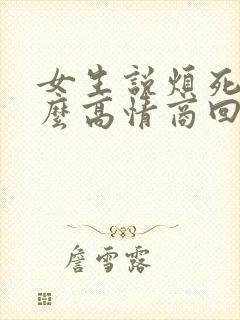 女生說煩死
麼高情商回
詹雪露